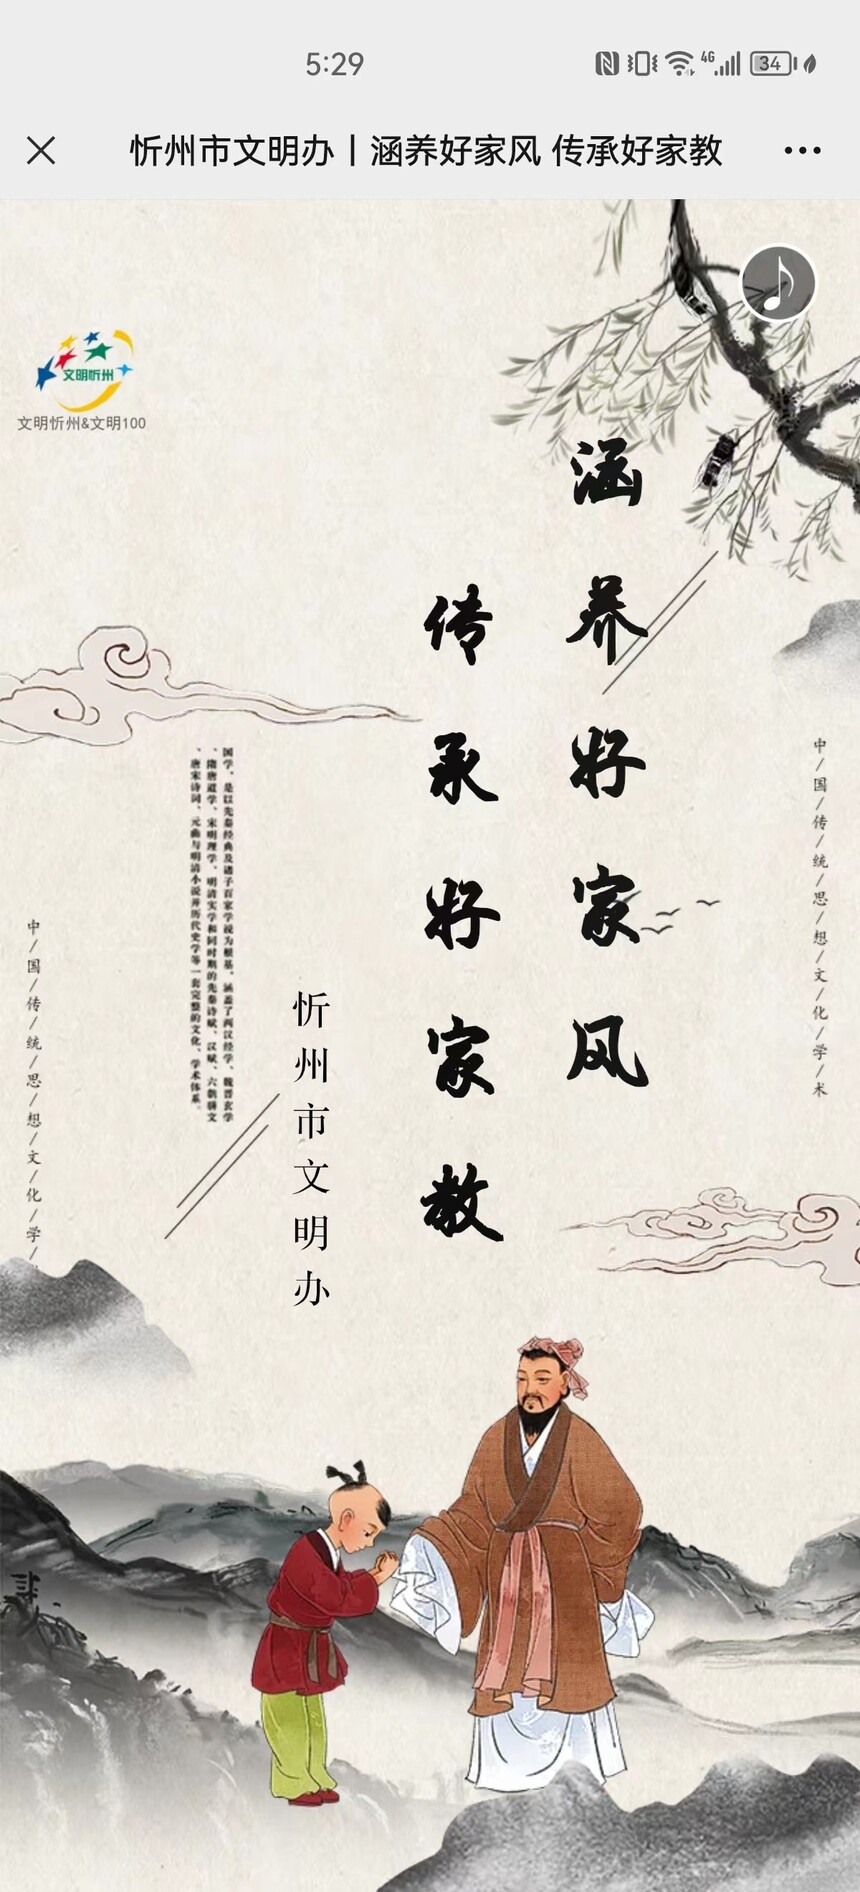 5:29
4G
34
忻州市文明办丨涵养好家风 传承好家教
文明忻州
文明忻州&文明100
涵养好家风
传承好家教
忻州市文明办
国学,是以先秦经典及诸子百家学说为根基,涵盖了两汉经学、魏晋玄学
、隋唐道学、宋明理学、明清实学和同时期的先秦诗赋、汉赋、六朝骈文
、唐宋诗词、元曲与明清小说并历代史学等一套完整的文化、学术体系。
中/国/传/统/思/想/文/化/学/术
中/国/传/统/思/想/文/化/学/